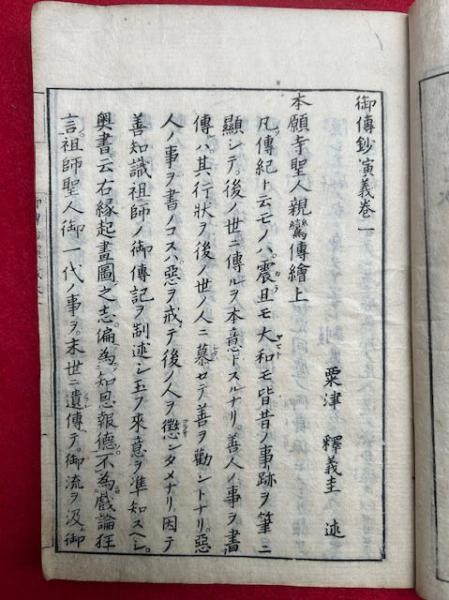 御傳鈔演義巻一
粟津 釋義圭 述
本願寺聖人親鸞傳繪上
凡傳紀ト云モノハ。震旦モ大和モ皆昔ノ事跡ヲ筆ニ
顯シテ。後ノ世ニ傳ルヲ本意トスルナリ。善人ノ事ヲ書
傳ハ其行狀ヲ後ノ世ノ人ニ慕セテ善ヲ勸ントナリ。惡
人ノ事ヲ書ノコスハ惡ヲ戒テ後ノ人ヲ懲ンタメナリ。因テ
善知識祖師ノ御傳記ヲ制述シ玉フ來意ヲ準知スヘシ。
奥書云右縁起畫圖之志。偏為知恩報德。不為戲論狂
言。祖師聖人御一代ノ事ヲ。末世ニ遺傳テ。御流ヲ汲。御